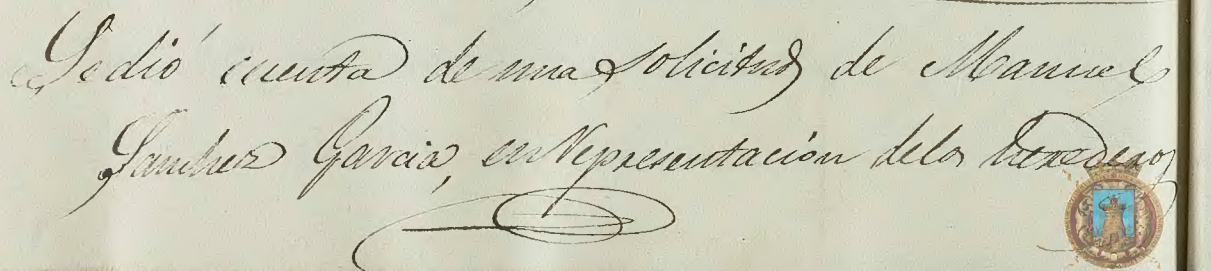 Se dió cuenta de una solicitud de Manuel
Sanchez Garcia, en representación de los herederos